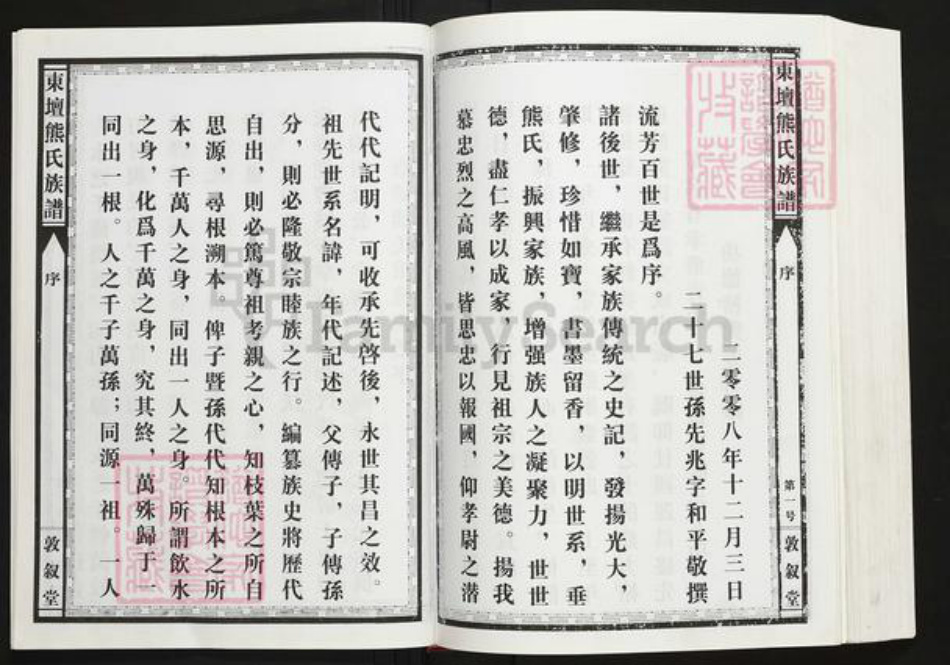 東壇熊氏族譜
序
敦叙堂
同出一根。人之千子萬孫；同源一祖。一人
之身，化爲千萬之身，究其終，萬殊歸于一
本，千萬人之身，同出一人之身。所謂飲水
思源，尋根溯本。俾子暨孫代代知根本之所
自出，則必篤尊祖考親之心，知枝葉之所自
分，則必隆敬宗睦族之行。編纂族史將歷代
祖先世系名諱，年代記述，父傳子，子傳孫
代代記明，可收承先啓後，永世其昌之效。
慕忠烈之高風，皆思忠以報國，仰孝尉之潛
德，盡仁孝以成家，行見祖宗之美德。揚我
熊氏，振興家族，增强族人之凝聚力，世世
肇修，珍惜如寶，書墨留香，以明世系，垂
諸後世，繼承家族傳統之史記，發揚光大，
流芳百世是爲序。
二十七世孫先兆字和平敬撰
二零零八年十二月三日
東壇熊氏族譜
序
第一号
敦叙堂
FamilySearch